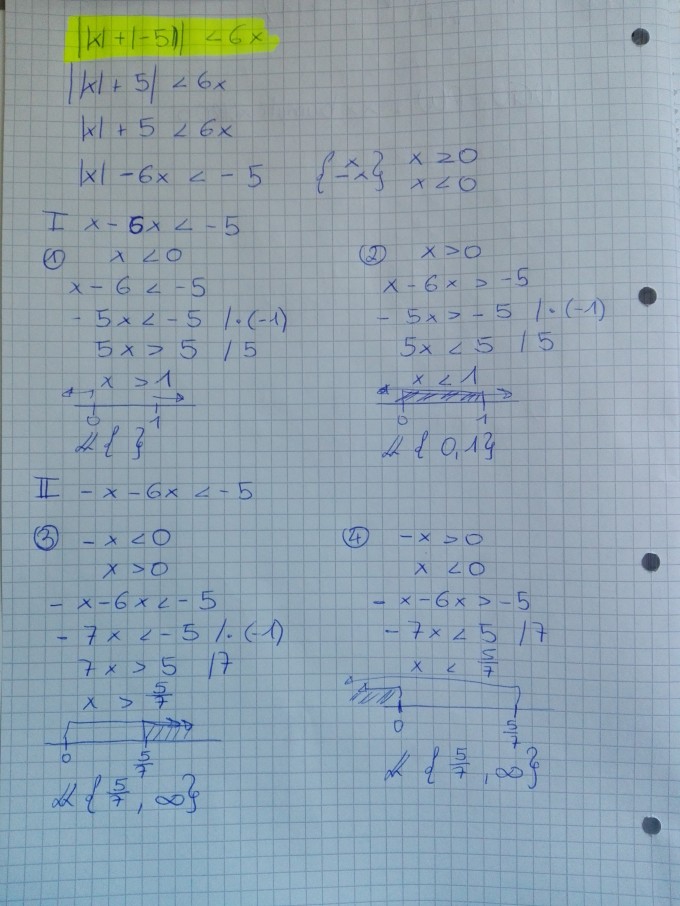 ||x| + |-5|| < 6x
||x| + 5| < 6x
|x| + 5 < 6x
|x| - 6x < - 5 { x -x } x ≥ 0 x < 0
I x - 6x < - 5
① x < 0
x - 6 < -5
- 5x < - 5 / · (-1)
5x > 5 / 5
x > 1
0 1
𝕃 { }
② x > 0
x - 6x > - 5
- 5x > - 5 / · (-1)
5x < 5 / 5
x < 1
0 1
𝕃 { 0,1 }
II - x - 6x < - 5
③ - x < 0
x > 0
- x - 6x < - 5
- 7x < - 5 / · (-1)
7x > 5 / 7
x > 5/7
0 5/7
𝕃 { 5/7 , ∞ }
④ - x > 0
x < 0
- x - 6x > - 5
- 7x < 5 / 7
x < 5/7
0 5/7
𝕃 { 5/7 , ∞ }